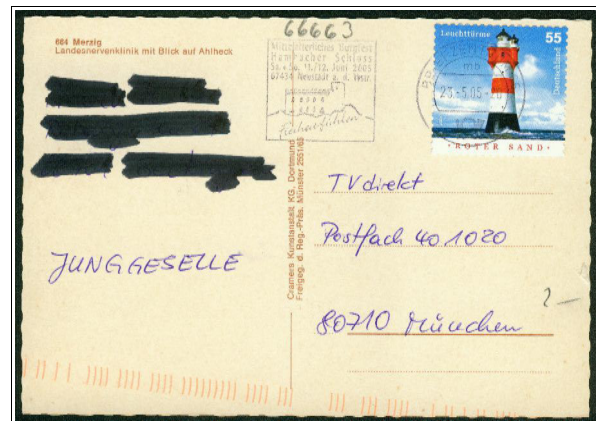 66663
664 Merzig
Landesnervenklinik mit Blick auf Ahlheck
Mittelalterliches Burgfest
Hambacher Schloss
Sa. + So. 11./12. Juni 2005
67434 Neustadt a. d. Wstr.
Freiheit fühlen
Leuchttürme
55
Deutschland
23.-5.05-20
ROTER SAND
Cramers Kunstanstalt KG, Dortmund
Freigeg. d. Reg.-Präs. Münster 2551/65
TV direkt
Postfach 40 1020
80710 München
JUNGGESELLE
2 —